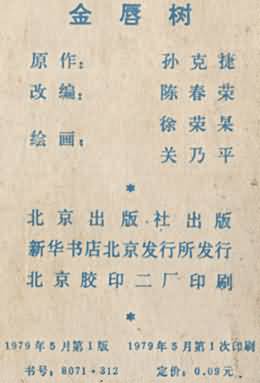 金唇树
原作： 孙克捷
改编： 陈春荣
绘画： 徐荣杲
关乃平
*
北京出版社出版
新华书店北京发行所发行
北京胶印二厂印刷
*
1979年5月第1版 1979年5月第1次印刷
书号：8071·312 定价：0.09元